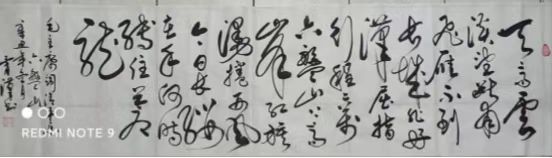 天高雲
淡望斷南
飛雁不到
長城非好
漢屈指
行程二萬
六盤山上高
峰紅旗
漫捲西風
今日長纓
在手何時
縛住蒼
龍
毛主席詞
六盤山
辛丑年
REDMI NOTE 9